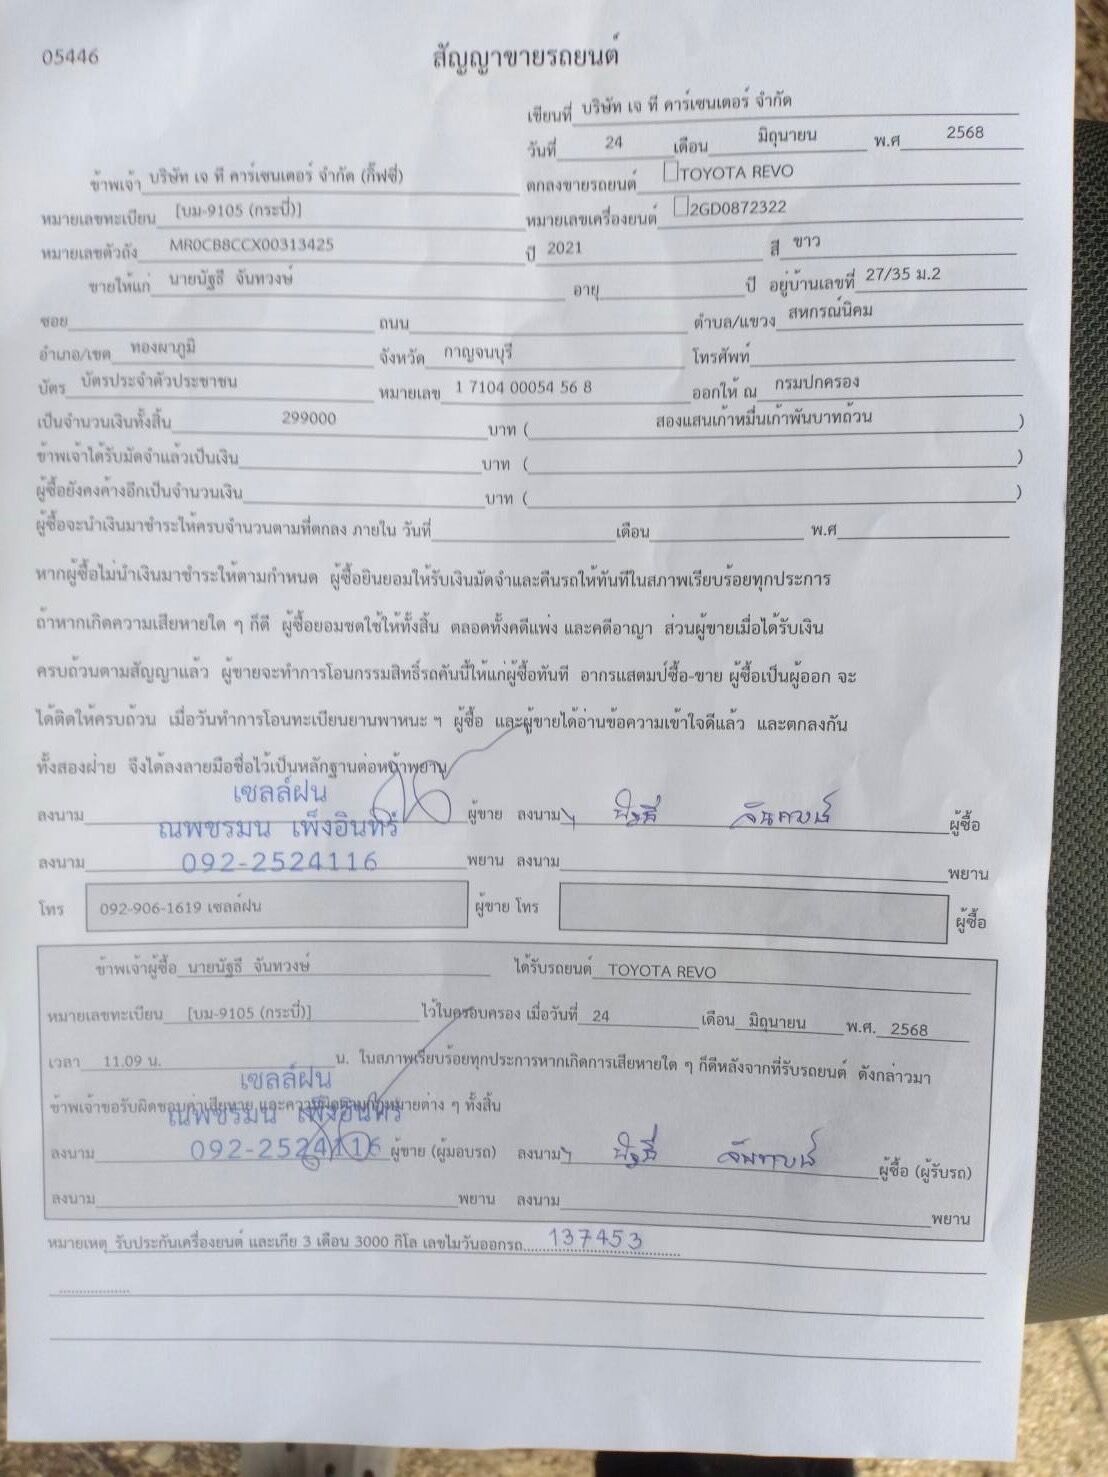 05446
สัญญาขายรถยนต์
เขียนที่ บริษัท เจ ที คาร์เซนเตอร์ จำกัด
วันที่ 24 เดือน มิถุนายน พ.ศ 2568
ข้าพเจ้า บริษัท เจ ที คาร์เซนเตอร์ จำกัด (กิ๊ฟซี่) ตกลงขายรถยนต์ TOYOTA REVO
หมายเลขทะเบียน [บม-9105 (กระบี่)] หมายเลขเครื่องยนต์ 2GD0872322
หมายเลขตัวถัง MR0CB8CCX00313425 ปี 2021 สี ขาว
ขายให้แก่ นายนัฐธี จันทวงษ์ อายุ ปี อยู่บ้านเลขที่ 27/35 ม.2
ซอย ถนน ตำบล/แขวง สหกรณ์นิคม
อำเภอ/เขต ทองผาภูมิ จังหวัด กาญจนบุรี โทรศัพท์
บัตร บัตรประจำตัวประชาชน หมายเลข 1 7104 00054 56 8 ออกให้ ณ กรมปกครอง
เป็นจำนวนเงินทั้งสิ้น 299000 บาท ( สองแสนเก้าหมื่นเก้าพันบาทถ้วน )
ข้าพเจ้าได้รับมัดจำแล้วเป็นเงิน บาท ( )
ผู้ซื้อยังคงค้างอีกเป็นจำนวนเงิน บาท ( )
ผู้ซื้อจะนำเงินมาชำระให้ครบจำนวนตามที่ตกลง ภายใน วันที่ เดือน พ.ศ
หากผู้ซื้อไม่นำเงินมาชำระให้ตามกำหนด ผู้ซื้อยินยอมให้รับเงินมัดจำและคืนรถให้ทันทีในสภาพเรียบร้อยทุกประการ
ถ้าหากเกิดความเสียหายใด ๆ ก็ดี ผู้ซื้อยอมชดใช้ให้ทั้งสิ้น ตลอดทั้งคดีแพ่ง และคดีอาญา ส่วนผู้ขายเมื่อได้รับเงิน
ครบถ้วนตามสัญญาแล้ว ผู้ขายจะทำการโอนกรรมสิทธิ์รถคันนี้ให้แก่ผู้ซื้อทันที อากรแสตมป์ซื้อ-ขาย ผู้ซื้อเป็นผู้ออก จะ
ได้ติดให้ครบถ้วน เมื่อวันทำการโอนทะเบียนยานพาหนะ ฯ ผู้ซื้อ และผู้ขายได้อ่านข้อความเข้าใจดีแล้ว และตกลงกัน
ทั้งสองฝ่าย จึงได้ลงลายมือชื่อไว้เป็นหลักฐานต่อหน้าพยาน
เซลล์ฝน
ลงนาม ณพชรมน เพ็งอินทร์ ผู้ขาย ลงนาม นัฐธี จันทวงษ์ ผู้ซื้อ
ลงนาม 092-2524116 พยาน ลงนาม พยาน
โทร 092-906-1619 เซลล์ฝน ผู้ขาย โทร ผู้ซื้อ
ข้าพเจ้าผู้ซื้อ นายนัฐธี จันทวงษ์ ได้รับรถยนต์ TOYOTA REVO
หมายเลขทะเบียน [บม-9105 (กระบี่)] ไว้ในครอบครอง เมื่อวันที่ 24 เดือน มิถุนายน พ.ศ. 2568
เวลา 11.09 น. น. ในสภาพเรียบร้อยทุกประการหากเกิดการเสียหายใด ๆ ก็ดีหลังจากที่รับรถยนต์ ดังกล่าวมา
เซลล์ฝน
ข้าพเจ้าขอรับผิดชอบค่าเสียหาย และความผิดตามกฎหมายต่าง ๆ ทั้งสิ้น
ณพชรมน เพ็งอินทร์
ลงนาม 092-2524116 ผู้ขาย (ผู้มอบรถ) ลงนาม นัฐธี จันทวงษ์ ผู้ซื้อ (ผู้รับรถ)
ลงนาม พยาน ลงนาม พยาน
หมายเหตุ รับประกันเครื่องยนต์ และเกีย 3 เดือน 3000 กิโล เลขไมวันออกรถ 137453